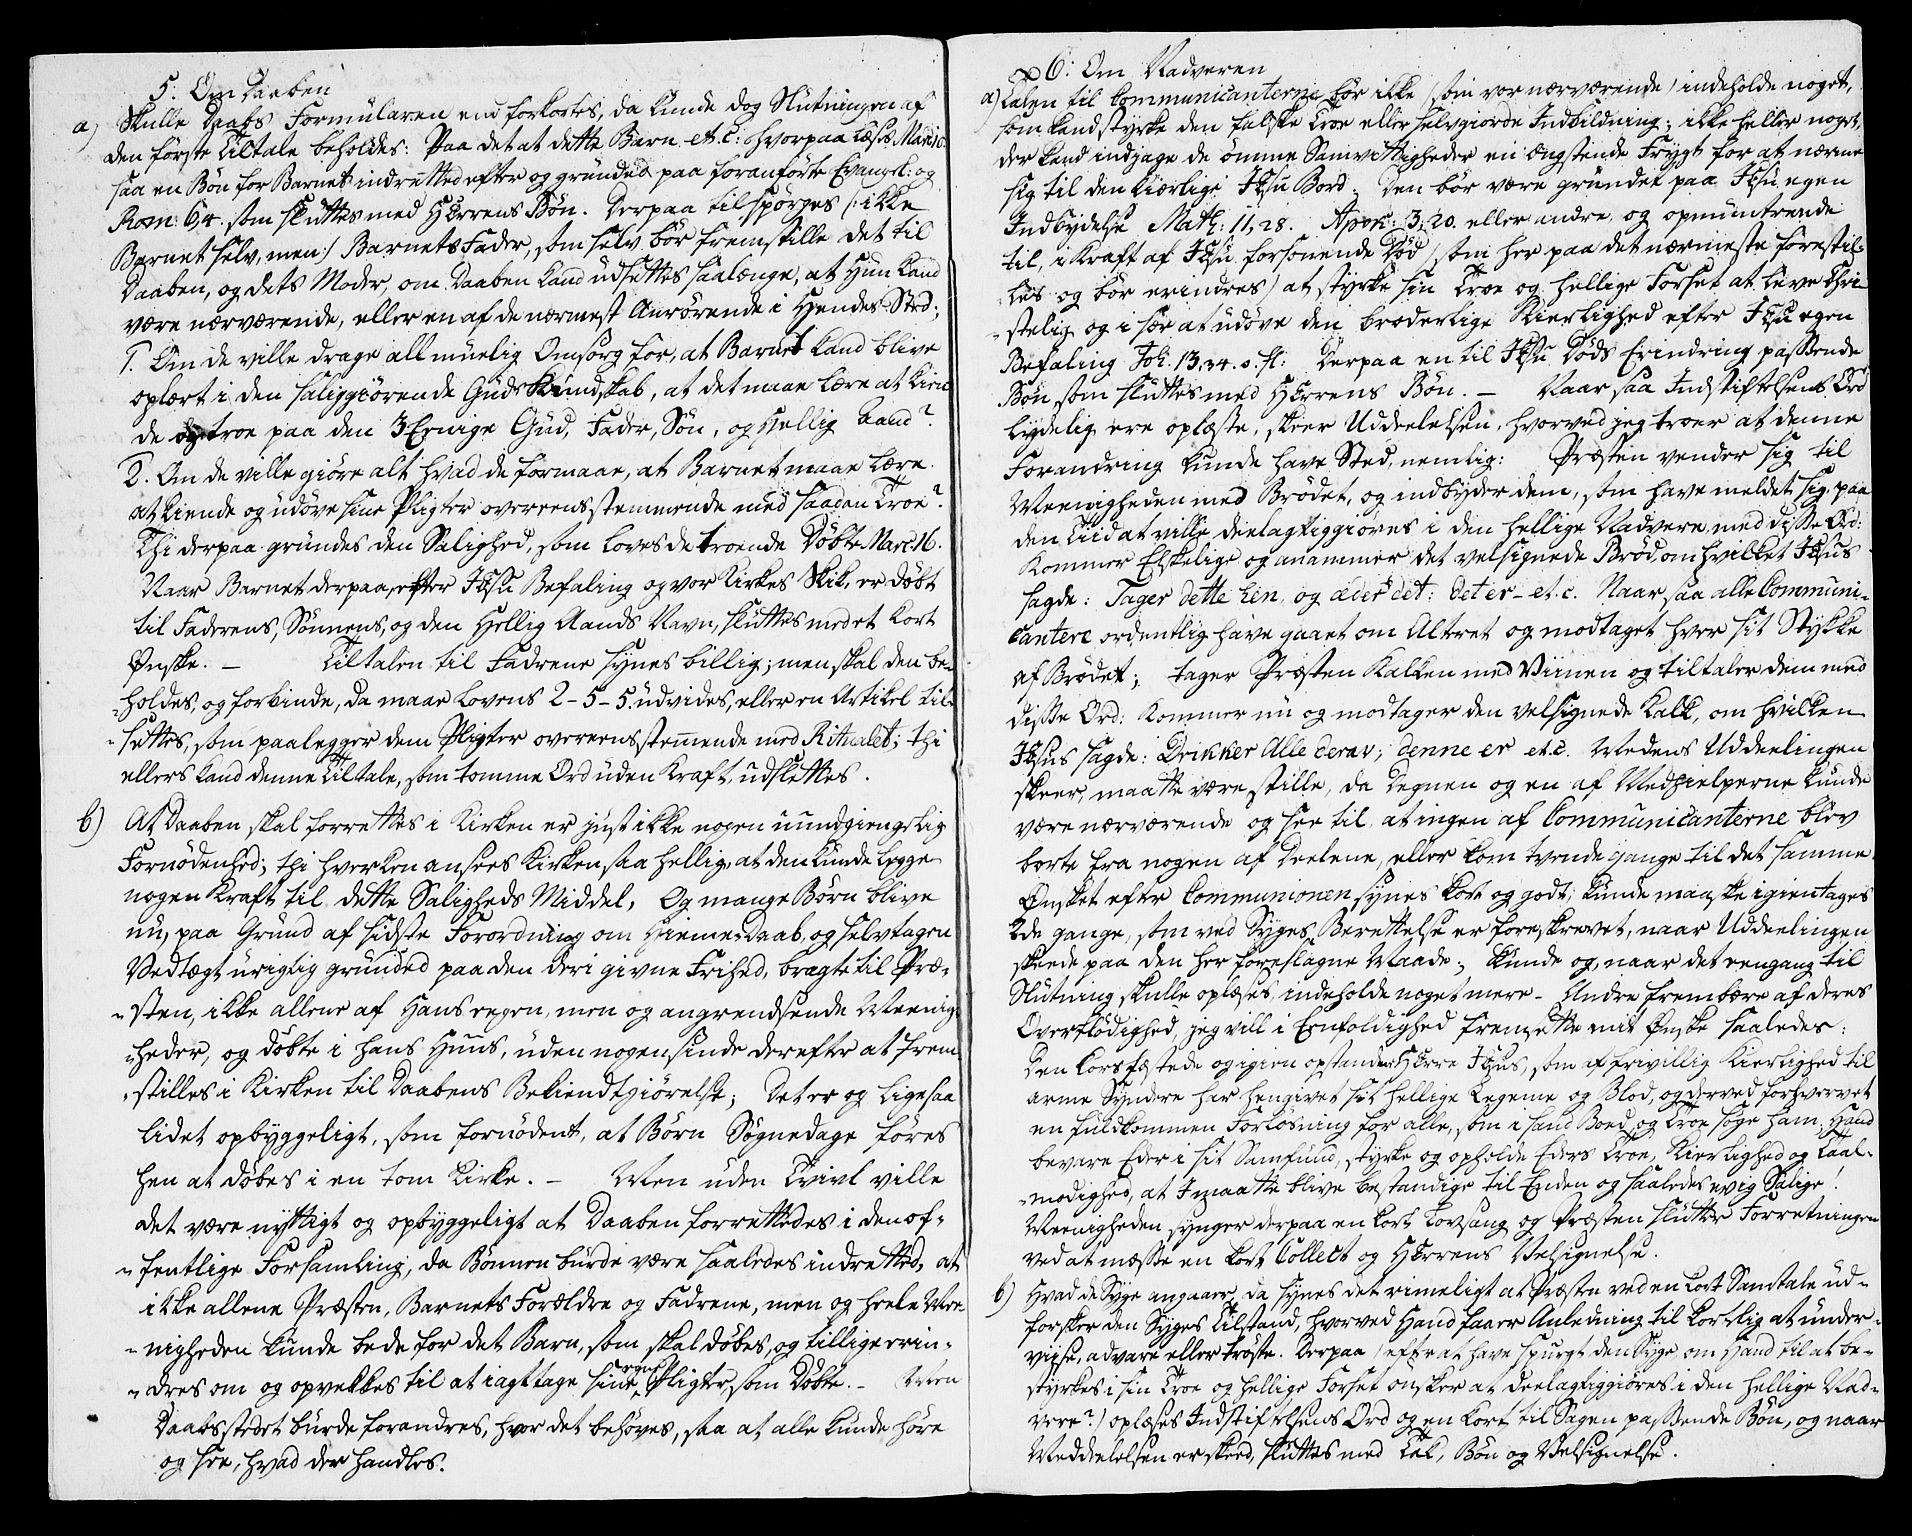 5. Om Daaben
a) Skulle Daabs Formularen end forkortes, da kunde dog Slutningen af
den förste Tiltale beholdes: Paa det at dette Barn et.c: hvorpaa læses Marc: 10.
saa en Bön for Barnet indrettet efter og grundet paa foranförte Evangel: og
Rom: 6,4. som sluttes med HErrens Bön. Derpaa tilspörges (: ikke
Barnet selv, men :) Barnets Fader, som selv bör fremstille det til
Daaben, og dets Moder, om Daaben kand udsettes saalænge, at Hun kand
være nærværende, eller en af de nærmest Anrörende i Hendes Sted;
1. Om de ville drage all muelig Omsorg for, at Barnet kand blive
oplært i den saliggiörende Guds Kundskab, at det maae lære at kien
de og troe paa den 3Eenige Gud, Fader, Sön, og Hellig Aand?
2. Om de ville giöre alt hvad de formaae, at Barnet maae lære
at kiende og udöve sine Pligter overeensstemmende med saadan Troe?
Thi derpaa grundes den Salighed, som loves de troende Döbte Marc. 16.
Naar Barnet derpaa, efter JEsu Befaling og vor Kirkes Skik, er döbt
til Faderens, Sönnens, og den Hellig Aands Navn, sluttes med et kort
Önske. – Tiltalen til Fadrene synes billig; men skal den be-
holdes, og forbinde, da maae Lovens 2-5-5. udvides, eller en Artikel til-
settes, som paalegger dem Pligter overeensstemende med Ritualet; thi
ellers kand denne Tiltale, som tomme Ord uden Kraft, udslettes.
b) At Daaben skal forrettes i Kirken er just ikke nogen uundgiengelig
Fornödenhed; thi hverken ansees Kirken saa hellig, at den kunde legge
nogen Kraft til dette Saligheds Middel, Og mange Börn blive
nu, paa Grund af sidste Forordning om Hieme-Daab, og selvtagen
Vedtægt urigtig grunded paa den deri givne Frihed, bragte til Præ-
-sten, ikke allene af Hans egen, men og angrendsende Meenig-
-heder, og döbte i hans Huus, uden nogensinde derefter at frem
-stilles i Kirken til Daabens Bekiendtgiörelse; Det er og ligesaa
lidet opbyggeligt, som fornödent, at Börn Sögnedage föres
hen at döbes i en tom Kirke. – Men uden Tvivl ville
det være nyttigt og opbyggeligt at Daaben forrettedes i den of-
-fentlige Forsamling, da Bönnen burde være saaledes indretted, at
ikke allene Præsten, Barnets Forældre og Fadrene, men og heele Mee
-nigheden kunde bede for det Barn, som skal döbes, og tillige erin-
-dres om og opvekkes til at iagttage sine egne Pligter, som Döbte. – Men
Daabsstedet burde forandres, hvor det behöves, saa at alle kunde höre
og see, hvad der handles.
6: Om Nadveren
a) Talen til Communicanterne bör ikke (som vor nærværende) indeholde noget,
som kand styrke den falske Troe eller selvgiorde Indbildning; ikke heller noget,
der kand indjage de ömme Samvittigheder en ængstende Frygt for at nærme
sig til den kiærlige JEsu Bord. Den bör være grundet paa JEsu egen
Indbydelse Math: 11,28. Apoc: 3,20. eller andre og opmuntrende
til, i Kraft af JEsu forsonende Död (som her paa det nærmeste forestil-
les og bör erindres) at styrke sin Troe og hellige Forset at leve Chri
-stelig og i sær at udöve den broderlige Kierlighed efter JEsu egen
Befaling Joh. 13,34. o. fl: Derpaa en til JEsu Döds Erindring passende
Bön som sluttes med HErrens Bön. – Naar saa Indstiftelsens Ord
lydelig ere oplæste, skeer Uddeelelsen, hvorved jeg troer at denne
Forandring kunde have Sted, nemlig: Præsten vender sig til
Meenigheden med Brödet, og indbyder dem, som have meldet sig paa
den Tiid at ville deelagtiggiöres i den hellige Nadvere med disse Ord:
Kommer Elskelige og anammer det velsignede Bröd om hvilket JEsus
sagde: Tager dette hen, og æder det: det er – et.c. Naar saa alle Communi-
cantere ordentlig have gaaet om Altret og modtaget hver sit Stykke
af Brödet; tager Præsten Kalken med Viinen og tiltaler dem med
disse Ord: Kommer nu og modtager den velsignede Kalk, om hvilken
JEsus sagde: Drikker Alle derav; denne er et.c. Medens Uddeelingen
skeer, maatte være stille, da Degnen og en af Medhielperne kunde
være nærværende og see til at ingen af Communicanterne blev
borte fra nogen af Deelene, eller kom tvende gange til det samme.
Önsket efter Communionen synes kort og godt; kunde maaske igientages
2de gange, som ved Syges Berettelse er foreskrevet, naar Uddeelingen
skeede paa den her foreslagne Maade; kunde og, naar det eengang til
Slutning skulle oplæses, indeholde noget mere – Andre frembære af deres
Overflödighed, jeg vill i Eenfoldighed fremsette mit Önske saaledes:
Den korsfæstede og igien opstandne HErre JEsus, som af frivillig Kierlighed til
arme Syndere har hengivet sit hellige Legeme og Blod, og derved forhvervet
en fuldkommen Forlösning for alle, som i sand Boed og Troe söge ham, Hand
bevare Eder i sit Samfund, styrke og opholde Eders Troe, Kierlighed og Taal-
-modighed, at I maatte blive bestandige til Enden og saaledes evig Salige!
Meenigheden synger derpaa en kort Lovsang og Præsten slutter Forretningen
ved at mæsse en kort Collect og HErrens Velsignelse.
b) Hvad de Syge angaaer, da synes det rimeligt at Præsten ved en kort Samtale ud-
forsker den Syges Tilstand, hvorved Hand faaer Anledning til kortelig at under-
viise, advare eller tröste. Derpaa (efter at have spurgt den Syge om Hand til at be-
styrkes i sin Troe og hellige Forset önsker at deelagtiggiöres i den hellige Nad-
vere?) oplæses Indstiftelsens Ord og en kort til Sagen passende Bön, og naar
Meddeelelsen er skeed, sluttes med Tak, Bön og Velsignelse.